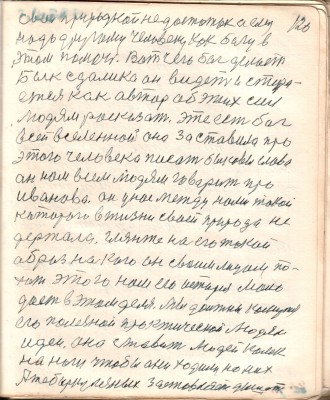 свой природной недостаток а ему
надо другому человеку как богу в
этом помочь. Вот чего бог делает
Бык сдалика он видеть и старо-
ется как автор об этих сил
людям рассказать. Это есть бог
всей вселенной она заставила про
этого человека писать быковы слова
он нам всем людям говорит про
Иванова. он у нас между нами такой
которого в жизни своей природа не
держала. гляньте на его такой
образ на кого он своим лицом по-
хож этого нам его история мало
дает в этом деля. Мы должны
его полезной практической людям
идеи. она ставит людей
на ноги чтобы они ходили на них
А тебя заставляет
120